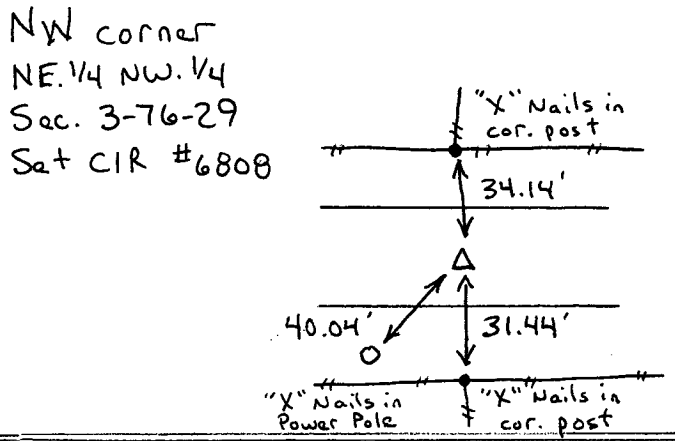 NW corner
NE.1/4 NW.1/4
Sec. 3-76-29
Set CIR #6808
"X" Nails in
cor. post
34.14'
40.04'
31.44'
"X" Nails in
Power Pole
"X" Nails in
cor. post